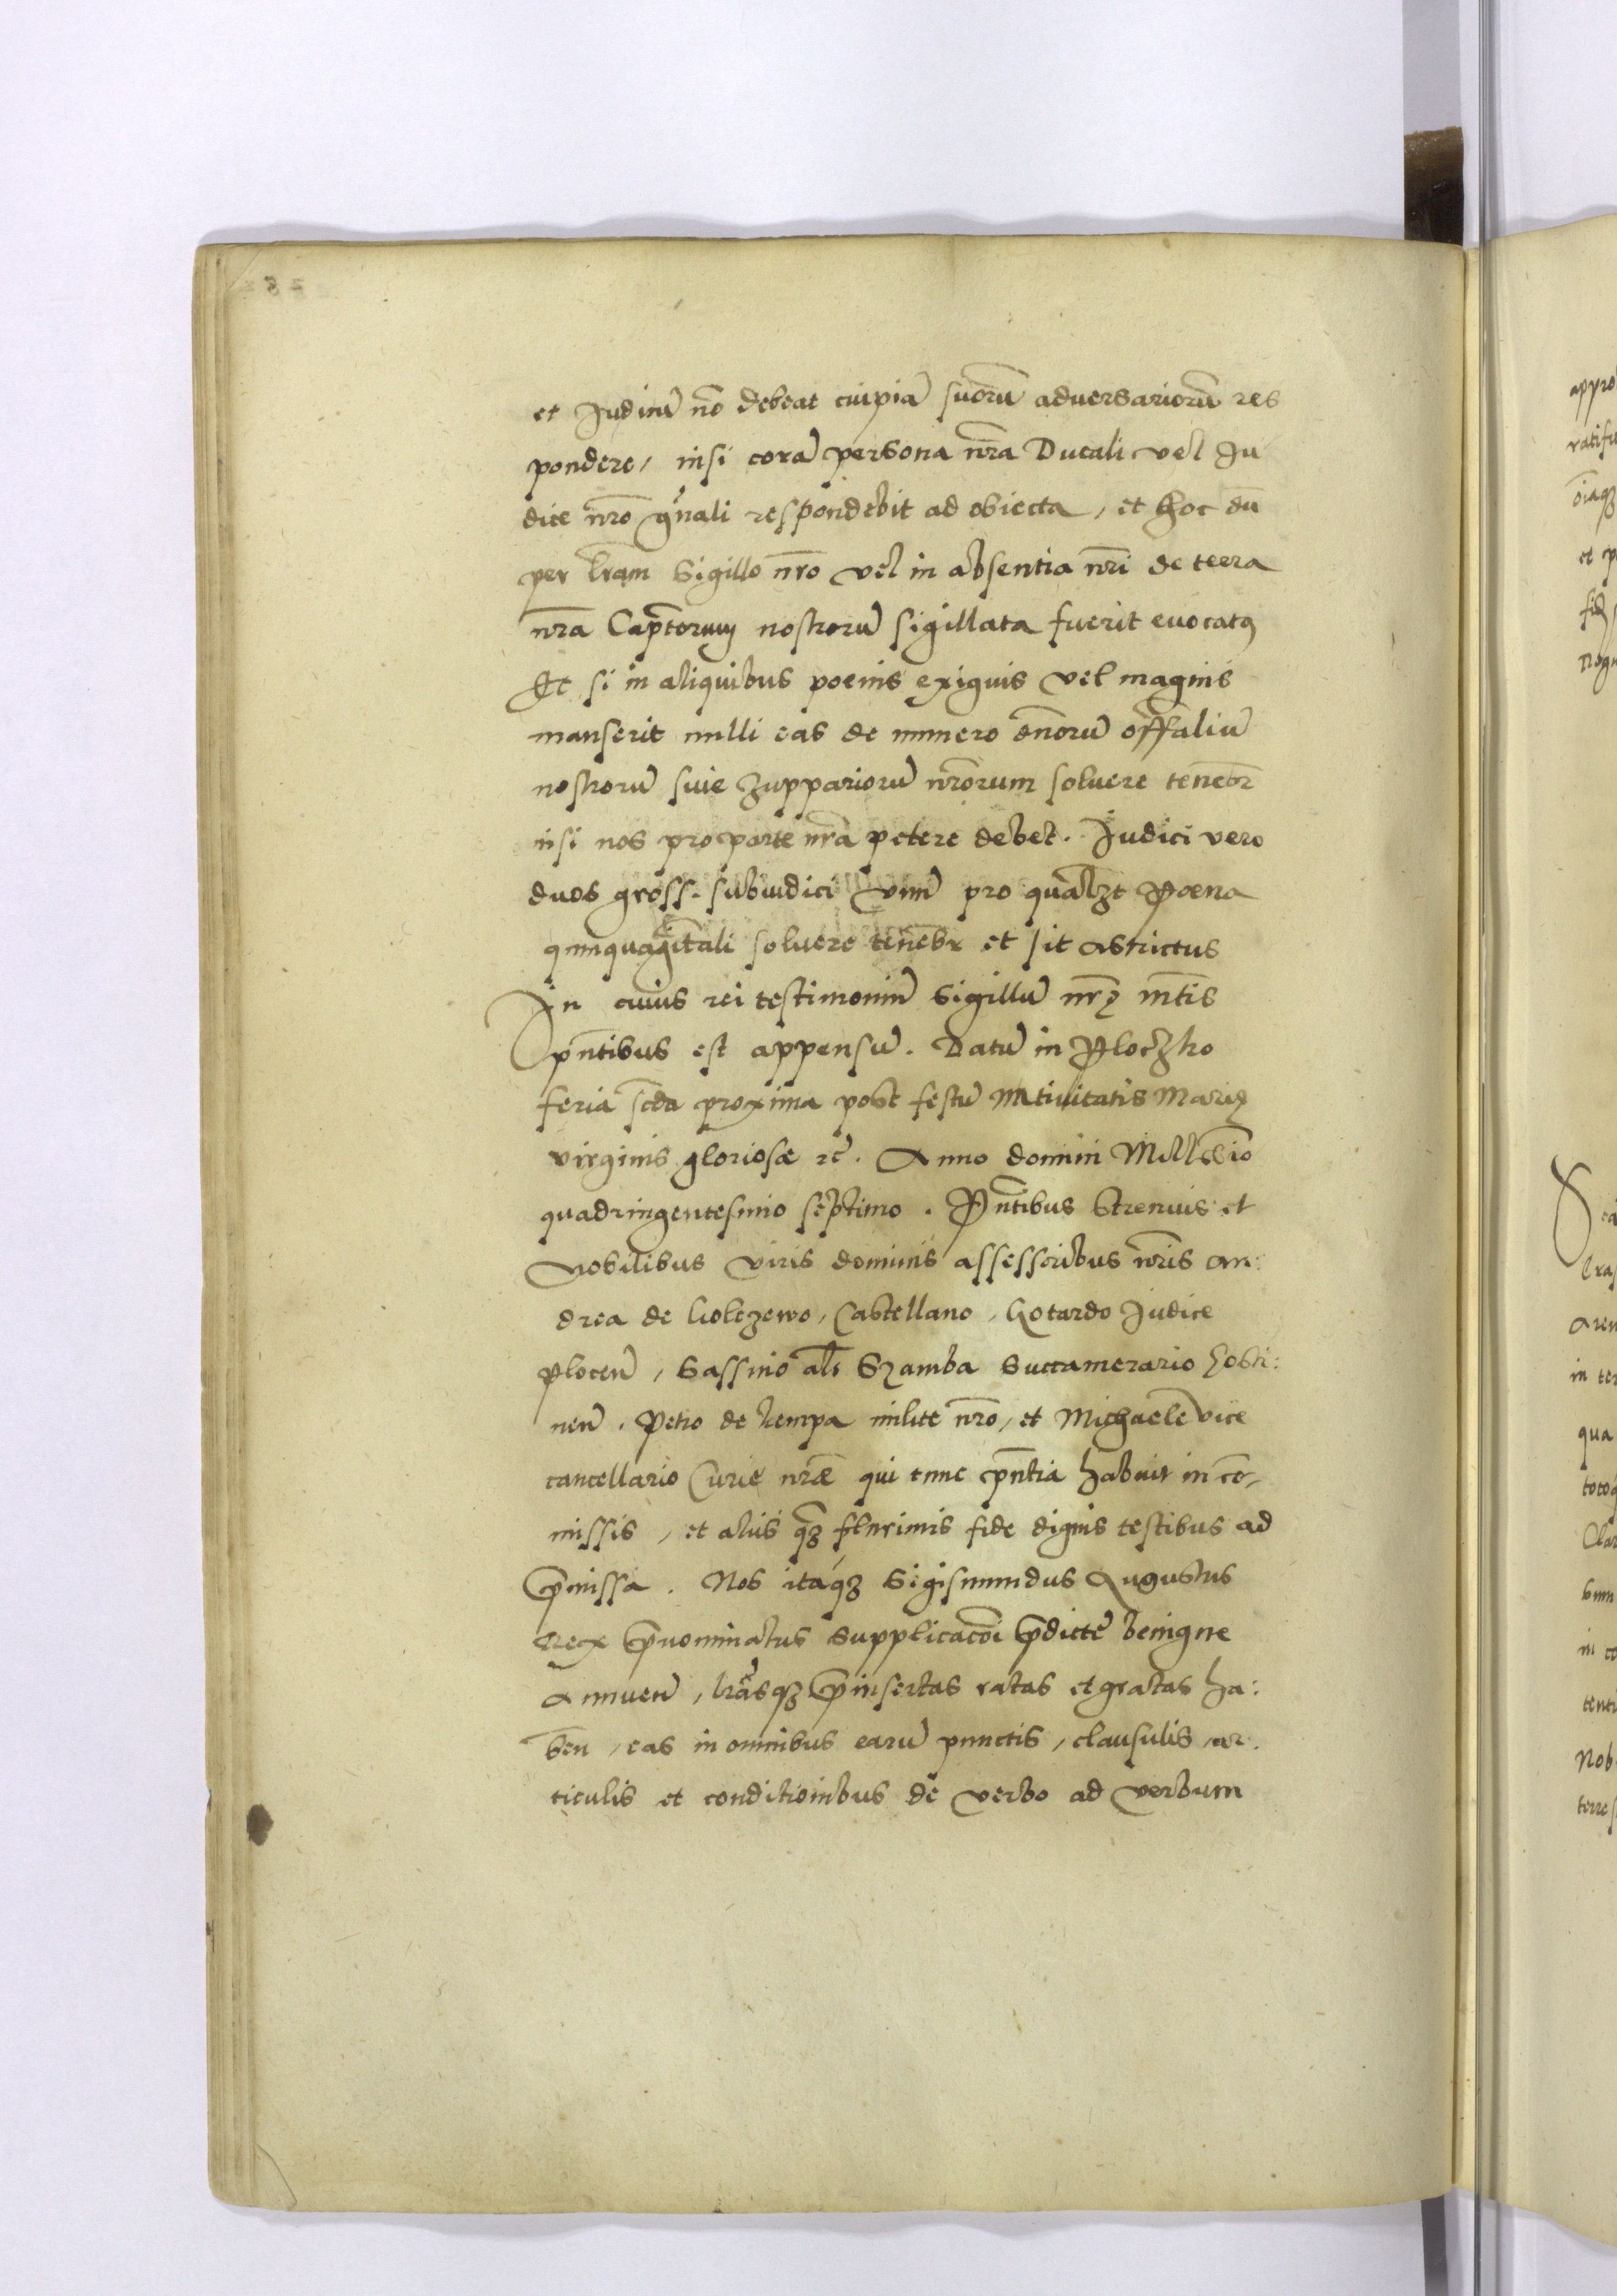 et Judiciū nō debeat cuipiā suorū adversariorū res
pondere, nisi corā persona nr̄a Ducali vel Ju
dice nr̄o gn̄ali respondebit ad obiecta, et hoc dū
per lr̄am Sigillo nr̄o vel in absentia nr̄i de terra
nr̄a Cap̄torum nostrorū sigillata fuerit euocatꝰ
Et si in aliquibus poenis exiguis vel magnis
manserit nulli eas de numero dn̄orū off̄aliū
nostrorū siue Zuppariorū nr̄orum soluere teneb̄r
nisi nos pro parte nr̄a petere debet. Judici vero
duos gross. subiudici vnū pro qualꝫt Poena
quinquagēn̄tali soluere teneb̄r et sit astrictus
In cuius rei testimoniū Sigillū nr̄ę mt̄is
pn̄tibus est appensū. Datū in Ploczko
feria scd̄a proxima post festū Natiuitatis Marię
virginis gloriosæ ꝛc̄. Anno domini Mill̄esīo
quadringentesimo septimo. Pn̄tibus Strenuis et
Nobilibus viris dominis assessoribus nr̄is An:
drea de Golczewo, Castellano, Gotardo Judice
Plocen̄, Sassino al̄s Szamba Succamerario Gosti:
nen̄. Petro de Kempa milite nr̄o, et Michaele vice
cancellario Curie nr̄æ qui tunc p̄ntia habuit in cō,
missis, et aliis qꝫ plurimis fide dignis testibus ad
p̄missa. Nos itaqꝫ Sigismundus Augustus
Rex p̄nominatus supplicacōi p̄dictę benigne
Annuen̄, lr̄asqꝫ p̄insertas ratas et gratas ha:
ben̄, eas in omnibus earū punctis, clausulis, ar.
ticulis et conditionibus de verbo ad verbum